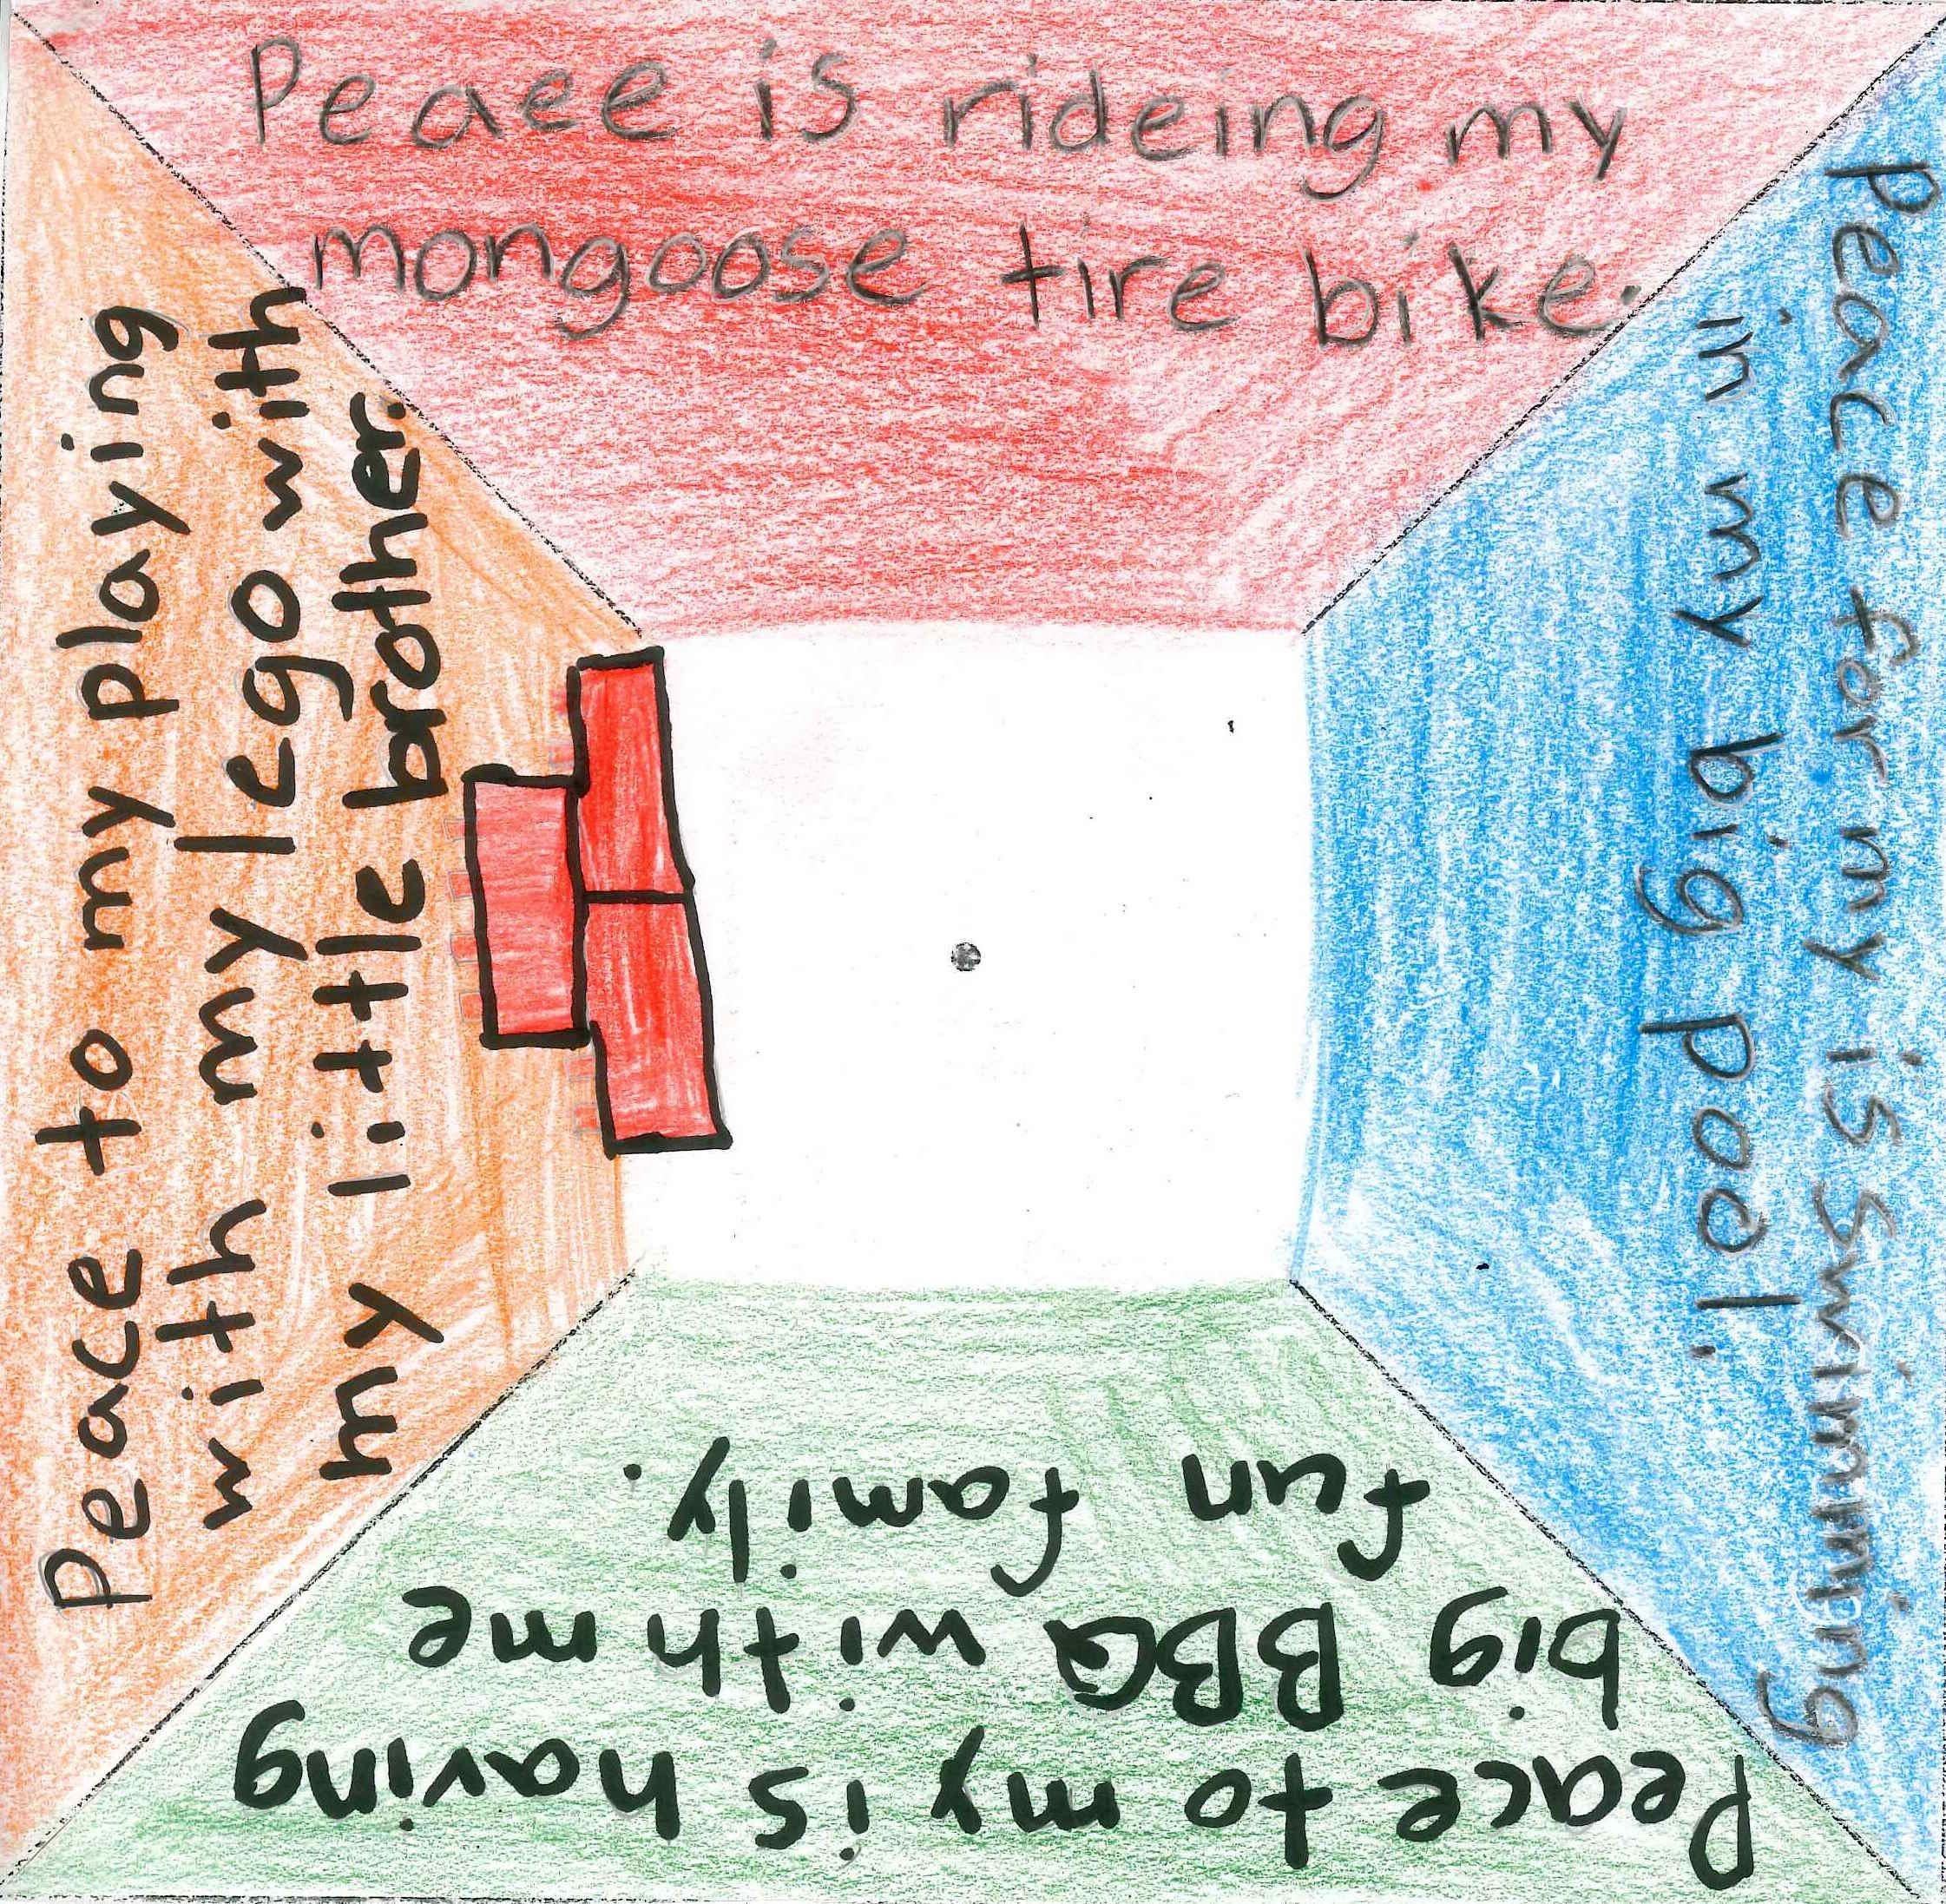 Peace is rideing my
mongoose tire bike.
Peace for my is Swimming
in my big pool.
Peace to my is having
big BBQ with me
fun family.
Peace to my playing
with my lego with
my little brother.